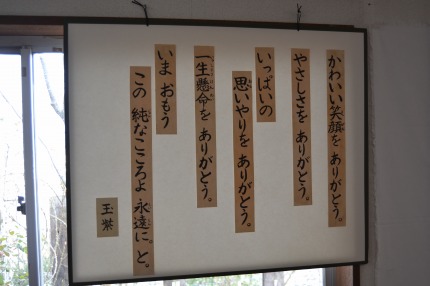 かわいい笑顔を ありがとう。
やさしさを ありがとう。
いっぱいの
思いやりを ありがとう。
一生懸命を ありがとう。
いま おもう
この 純なこころよ 永遠に。と。
玉紫